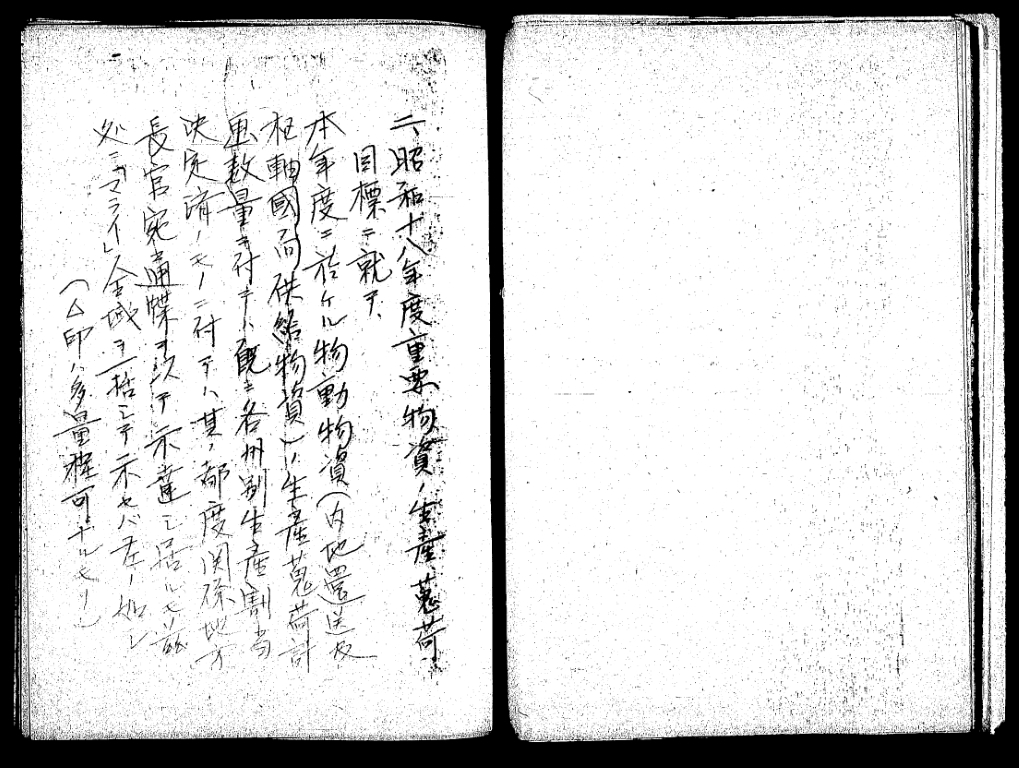 二、昭和十八年度重要物資ノ生産、蒐荷
目標ニ就テ、
本年度ニ於ケル物動物資（内地還送及
枢軸國向供給物資）ノ生産蒐荷計
画数量ニ付テハ既ニ各州別生産割当
決定済ノモノニ付テハ其ノ都度関係地方
長官宛通牒ヲ以テ示達シ居ルモ茲
処ニ「マライ」全域ヲ一括シテ示セバ左ノ如シ
（△印ハ多量程可ナルモノ）